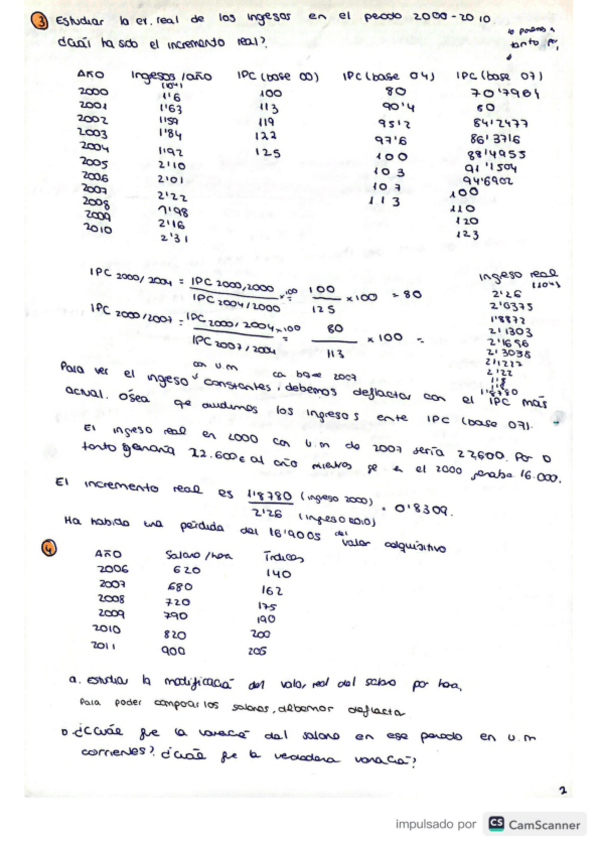 3 Estudiar la ev. real de los ingesos en el peodo 2000-2010.
¿Cuál ha sido el incremento real?.
Año Ingesos/año IPC (base 00) IPC (base 04) IPC (base 07)
2000 1'6 100 80 70'7964
2001 1'63 113 90'4 80
2002 1'59 119 95'2 84'2477
2003 1'84 122 97'6 86'3716
2004 1'92 125 100 88'4955
2005 2'10 103 91'1504
2006 2'01 107 94'6902
2007 2'22 113 100
2008 1'98 110
2009 2'16 120
2010 2'31 123
IPC 2000/2004 = IPC 2000/2000 / IPC 2004/2000 ×100 = 100/125 ×100 = 80
IPC 2000/2007 = IPC 2000/2004 / IPC 2007/2004 ×100 = 80/113 ×100 =
Ingeso real
2'26
2'0375
1'8872
2'1303
2'1696
2'3038
2'1227
2'22
1'8
1'8780
con u.m ca base 2007
Para ver el ingeso constantes, debemos deflactar con el IPC más
actual. Ósea qe dividimos los ingresos ente IPC (base 07).
El ingeso real en 2000 con u.m de 2007 sería 22,600. Por
tanto ganaria 22.600€ al año mietras qe en el 2000 16.000.
El incremento real es 1'8780 (ingeso 2000) / 2'26 (ingeso 2010) = 0'8309.
Ha habido una pérdida del 16'9005 del valor adquisitivo
4 Año Salario/hora Índices
2006 620 140
2007 680 162
2008 720 175
2009 790 190
2010 820 200
2011 900 205
a. estudiar la modificació del valor real del salario por hora,
Para poder comparar los salarios, debemos deflacta
b. ¿Cuál fue la variació del salario en ese periodo en u.m
corrientes? ¿Cuál fue la verdadera variació?
2
impulsado por CS CamScanner